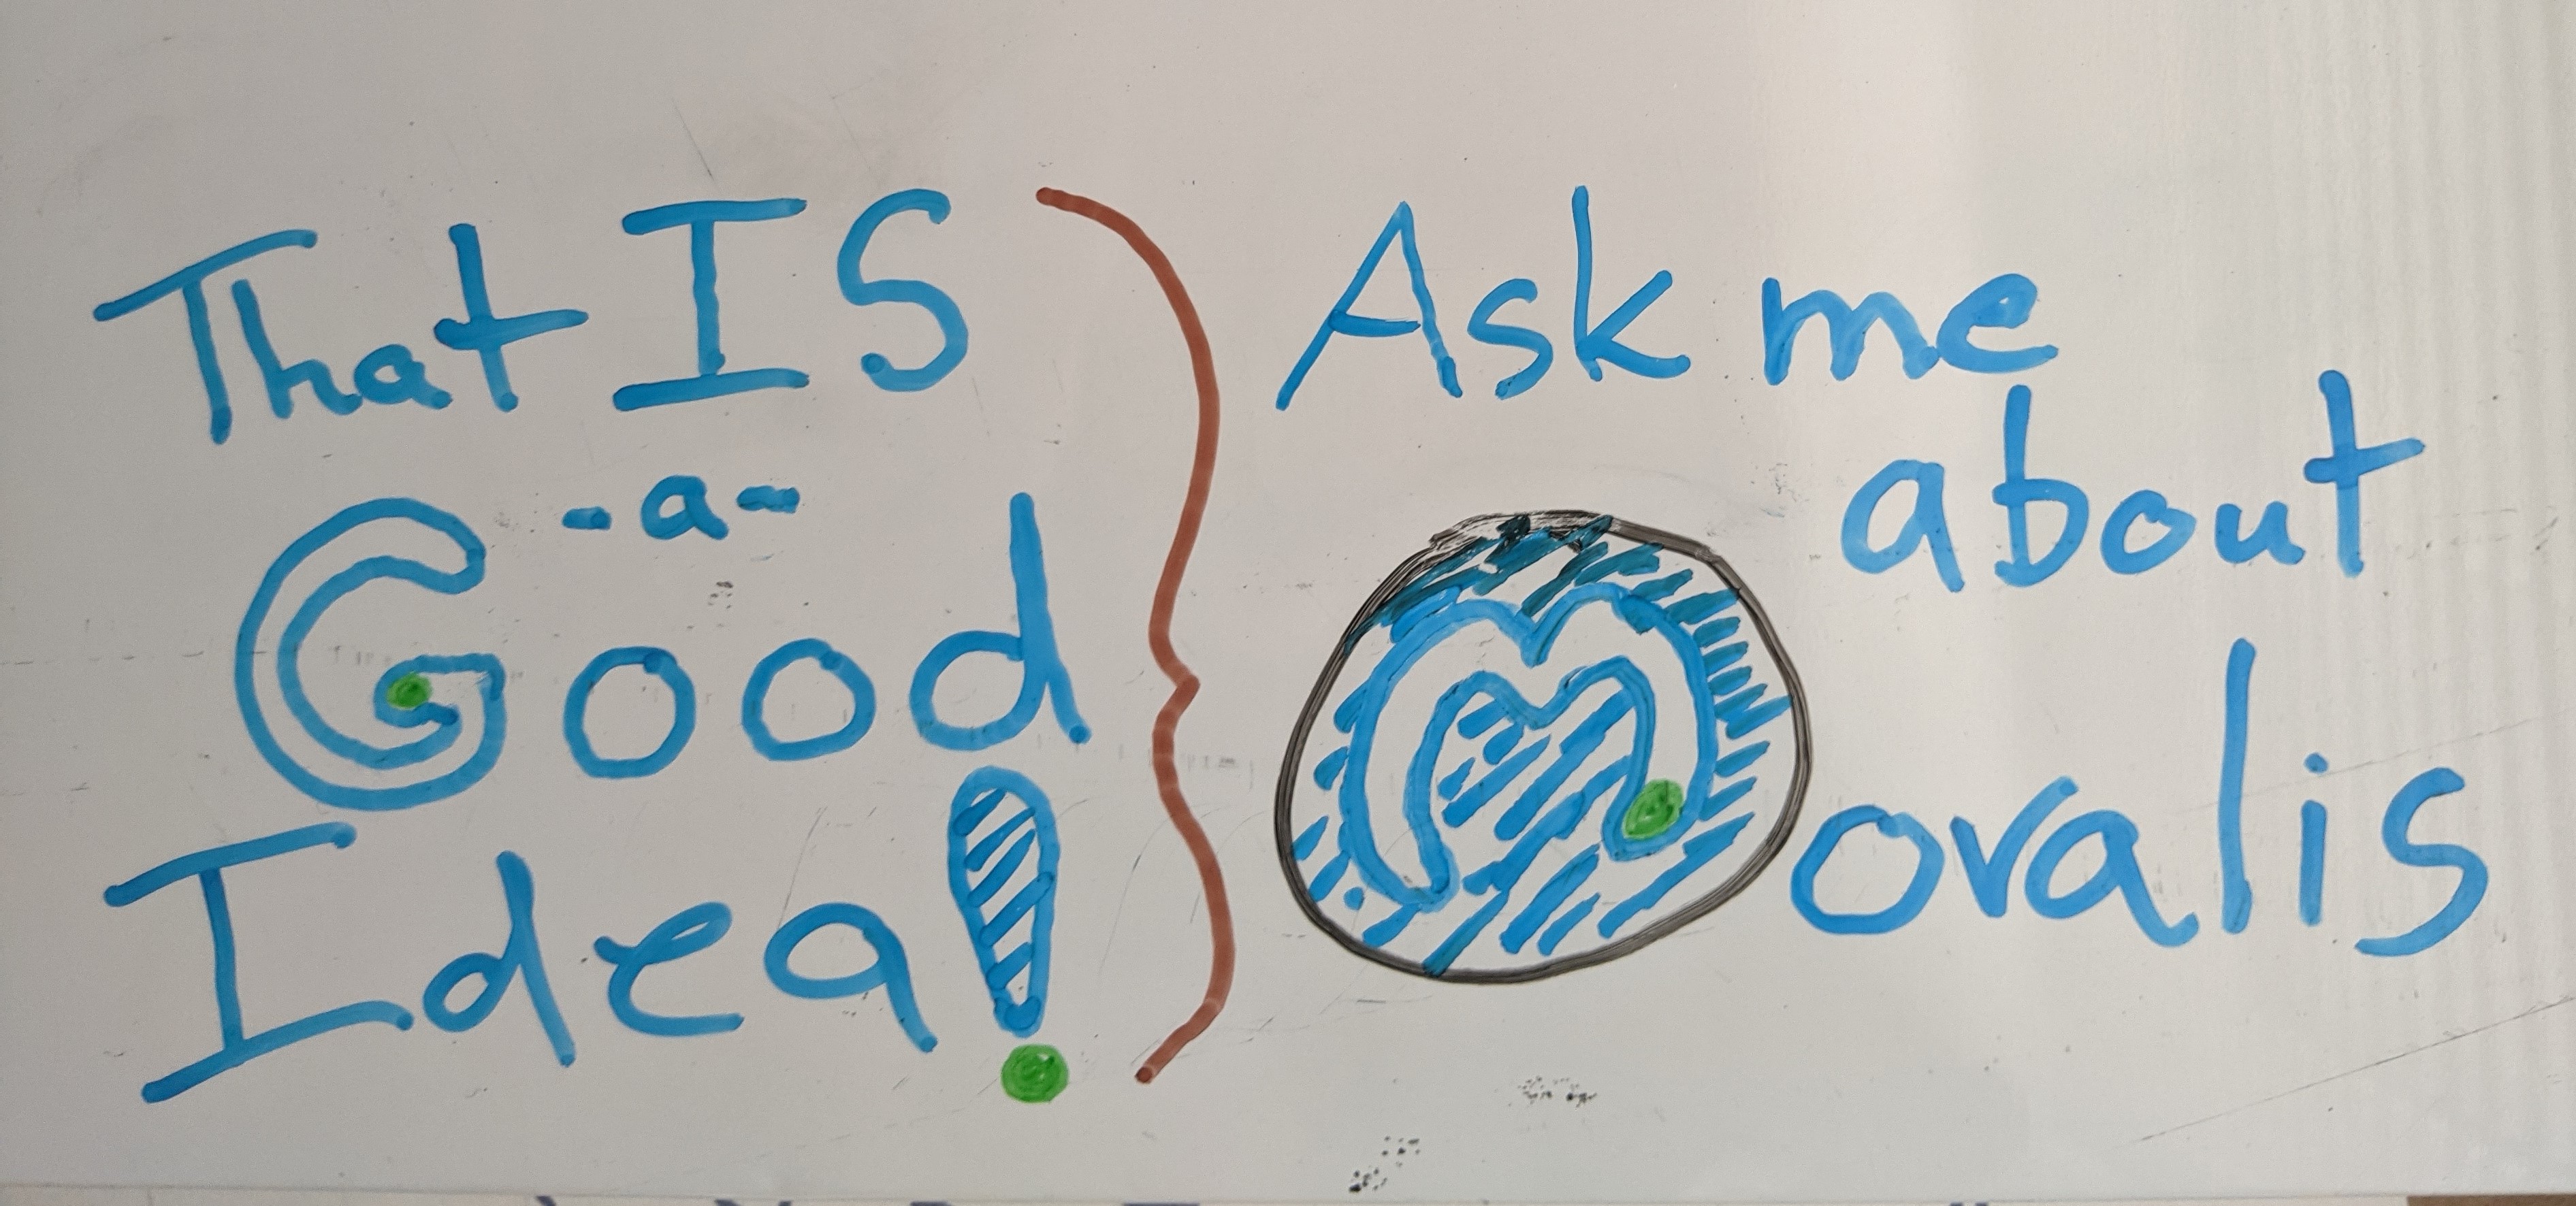 That IS
-a-
Good
Idea!
Ask me
about
Movalis